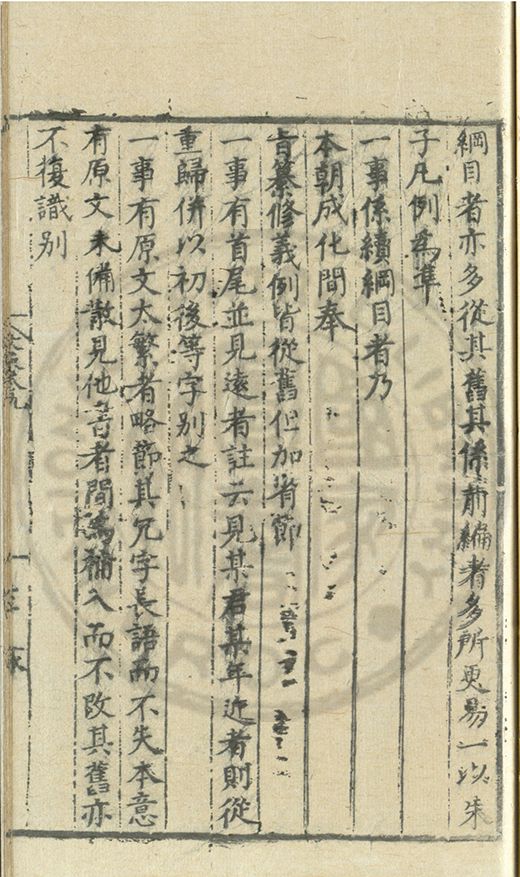 綱目者亦多從其舊其係前編者多所更易一以朱
子凡例爲準
一事係續綱目者乃
本朝成化間奉
旨纂修義例皆從舊但加省節
一事有首尾並見遠者註云見某君某年近者則從
重歸併以初後等字別之
一事有原文太繁者略節其冗字長語而不失本意
有原文未備散見他書者間爲補入而不改其舊亦
不復識別